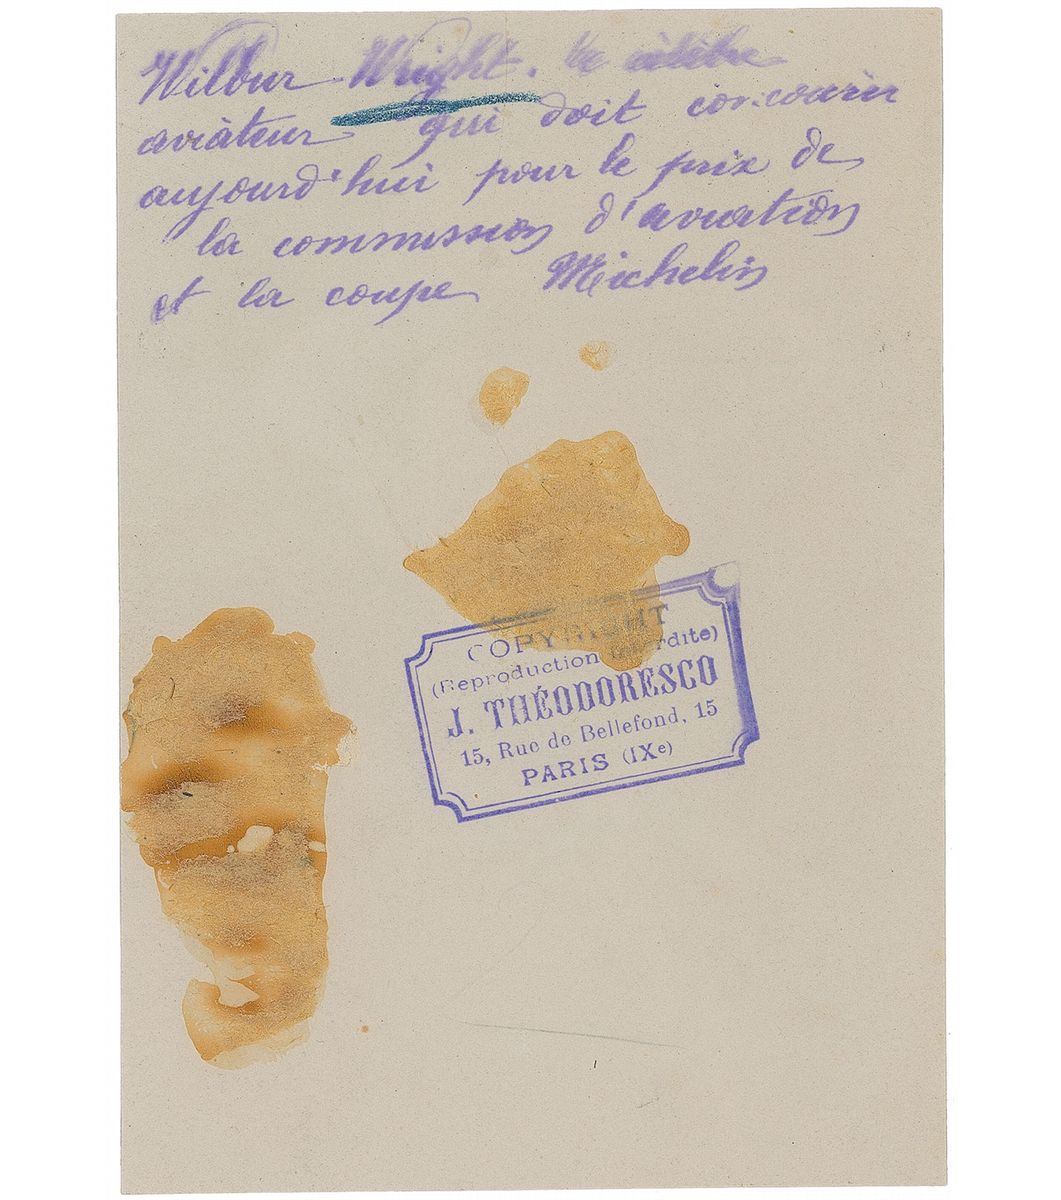 Wilbur Wright. le célèbre
aviateur qui doit concourir
aujourd'hui pour le prix de
la commission d'aviation
et la coupe Michelin
COPYRIGHT
(Reproduction interdite)
J. THÉODORESCO
15, Rue de Bellefond, 15
PARIS (IXe)